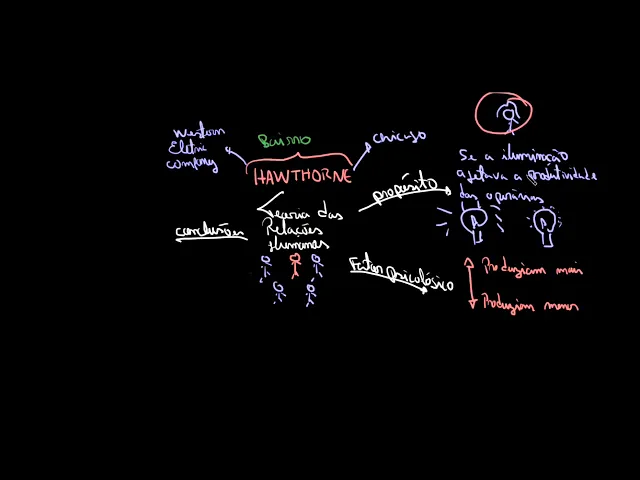 Western
Eletric
Company
Bairro
Chicago
HAWTHORNE
propósito
Se a iluminação
afetava a produtividade
dos operários
conclusões
Teoria das
Relações
Humanas
Fator psicológico
Produziam mais
Produziam menos